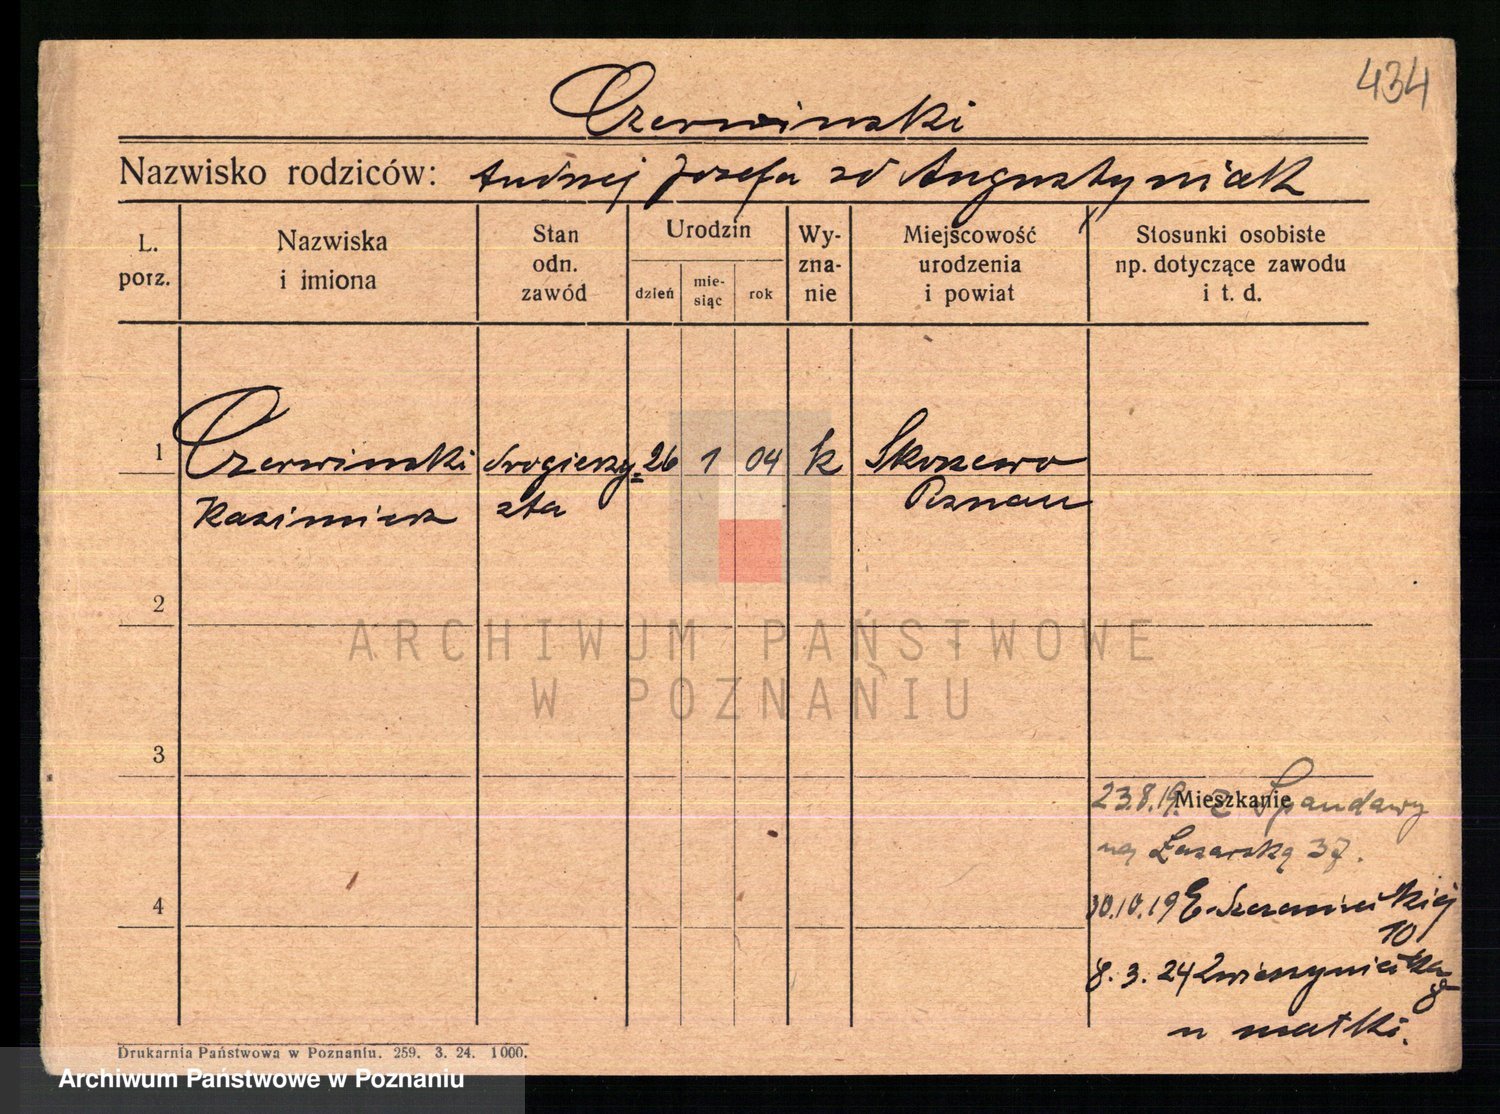 434
Czerwinski
Nazwisko rodziców: Andrzej Józefa zd Augustyniak
L. porz.
Nazwiska i imiona
Stan odn. zawód
Urodzin
dzień
mie-siąc
rok
Wy-zna-nie
Miejscowość urodzenia i powiat
Stosunki osobiste np. dotyczące zawodu i t. d.
1 Czerwinski drogierzy= 26 1 04 k Skoszewo
Kazimierz sta Poznan
2
ARCHIWUM PAŃSTWOWE
W POZNANIU
3
Mieszkanie
23.8.19. z Spandawy
na Łazarską 37.
30.10.19
10
4
8. 3. 24 Zwierzyniecka 8
u matki.
Drukarnia Państwowa w Poznaniu. 259. 3. 24. 1000.
Archiwum Państwowe w Poznaniu